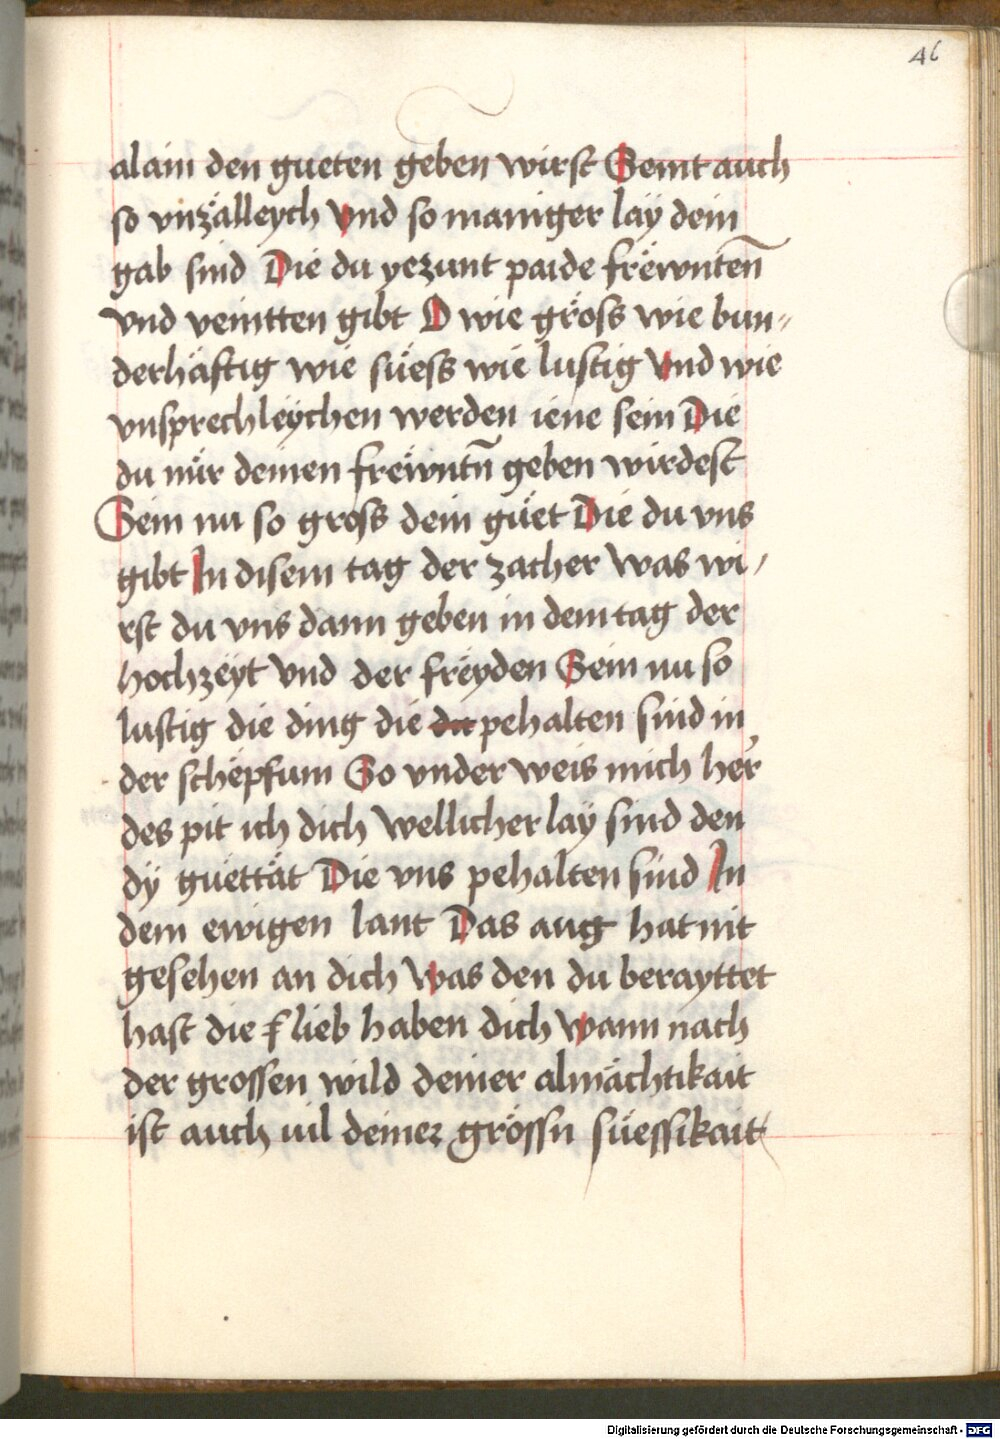 46
alain den gueten geben wirst Seint auch
so vnzälleych Vnd so maniger lay dein
gab sind Die du yezunt paide frëwnten̄
vnd veintten gibt O wie gröss wie bun„
derhäftig wie süess wie lustig Vnd wie
vnsprechleychen werden iene sein Die
du nür deinen frëwntn̄ geben wirdest
Sein nu so gross dein güet Die du vns
gibt In disem tag der zacher Was wi/
rst du vns dann geben in dem tag der
hochzëyt Vnd der frëyden Sein nu so
lustig die ding die du pehalten sind in
der schepfum So vnder weis mich her'
des pit ich dich Wellicher lay sind den
dÿ guettät Die vns pehalten sind In
dem ewigen lant Das aug hat nit
gesehen an dich Was den du berayttet
hast die lieb haben dich Wann nach
der grossen wild deiner almächtikait
ist auch uil deiner grössn süessikait
Digitalisierung gefördert durch die Deutsche Forschungsgemeinschaft - DFG